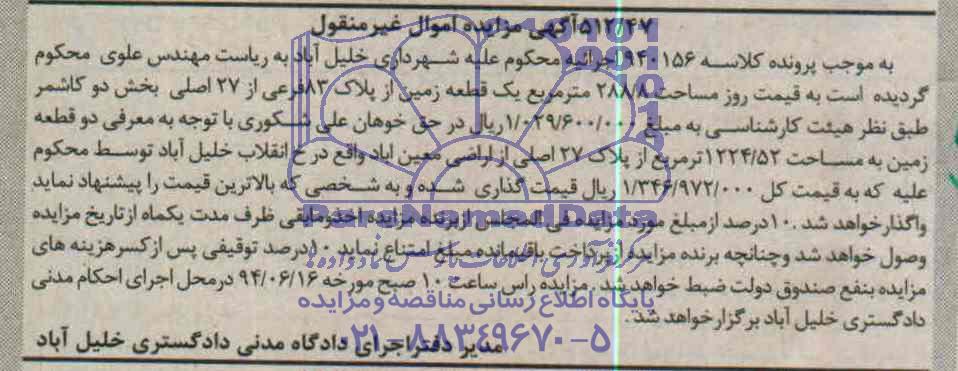 ۵۱۲/۴۷ آگهی مزایده اموال غیرمنقول
به موجب پرونده کلاسه ۹۴۰۱۵۶ اجرائیه محکوم علیه شهرداری خلیل آباد به ریاست مهندس علوی محکوم
گردیده است به قیمت روز مساحت ۲۸۸/۸ مترمربع یک قطعه زمین از پلاک ۸۳فرعی از ۲۷ اصلی بخش دو کاشمر
طبق نظر هیئت کارشناسی به مبلغ ۱/۰۲۹/۶۰۰/۰۰۰ریال در حق خوهان علی شکوری با توجه به معرفی دو قطعه
زمین به مساحت ۱۲۲۴/۵۲ترمربع از پلاک ۲۷ اصلی از اراضی معین اباد واقع در خ انقلاب خلیل آباد توسط محکوم
علیه که به قیمت کل ۱/۳۴۶/۹۷۲/۰۰۰ ریال قیمت گذاری شده و به شخصی که بالاترین قیمت را پیشنهاد نماید
واگذارخواهد شد .۱۰درصد ازمبلغ مورد مزایده فی المجلس ازبرنده مزایده اخذومابقی ظرف مدت یکماه ازتاریخ مزایده
وصول خواهد شد وچنانچه برنده مزایده ازپرداخت باقیمانده مبلغ امتناع نماید ۱۰درصد توقیفی پس ازکسرهزینه های
مزایده بنفع صندوق دولت ضبط خواهدشد. مزایده راس ساعت ۱۰ صبح مورخه ۹۴/۰۶/۱۶ درمحل اجرای احکام مدنی
دادگستری خلیل آباد برگزارخواهد شد.
مدیر دفتراجرای دادگاه مدنی دادگستری خلیل آباد
ParsNamadData
پایگاه اطلاع رسانی مناقصه و مزایده
۰۲۱-۸۸۳۴۹۶۷۰-۵